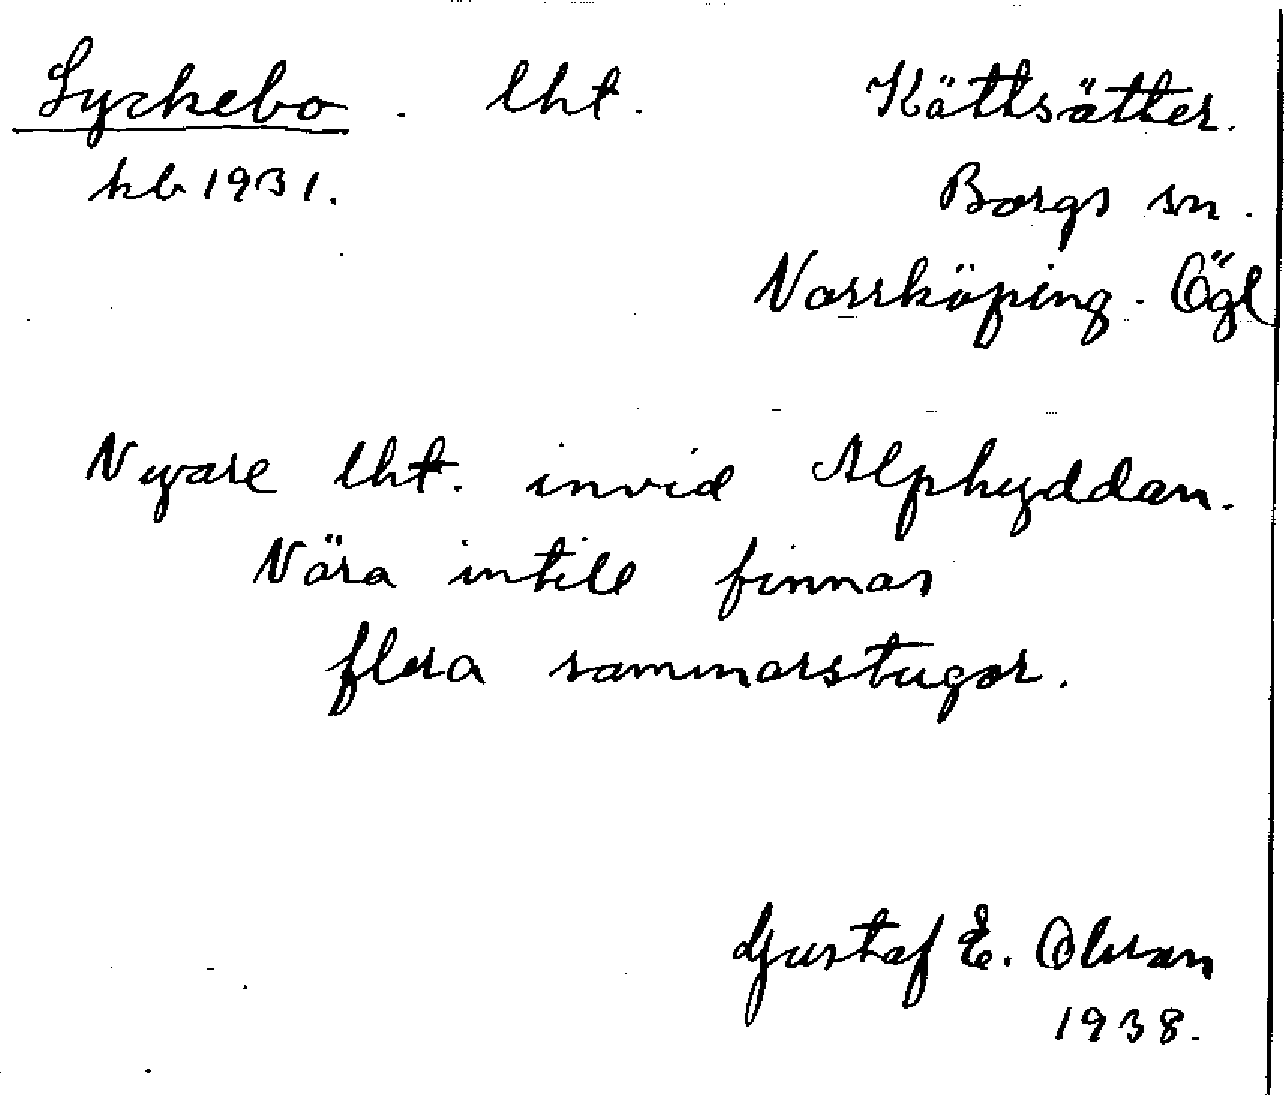 Lyckebo. lht. Kättsätter.
kb 1931. Borgs sn.
Norrköping. Ögl
Nyare lht. invid Alphyddan.
Nära intill finnas
flera sommarstugor.
Gustaf E. Olsson
1938.